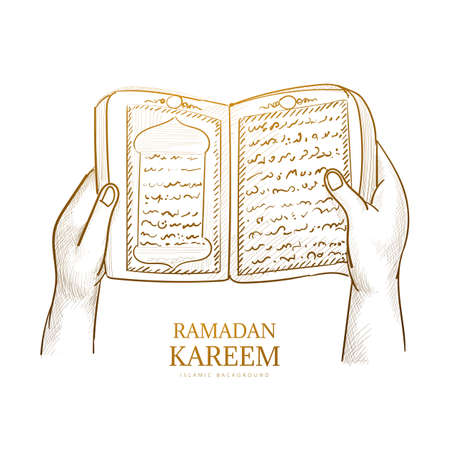 RAMADAN
KAREEM
ISLAMIC BACKGROUND